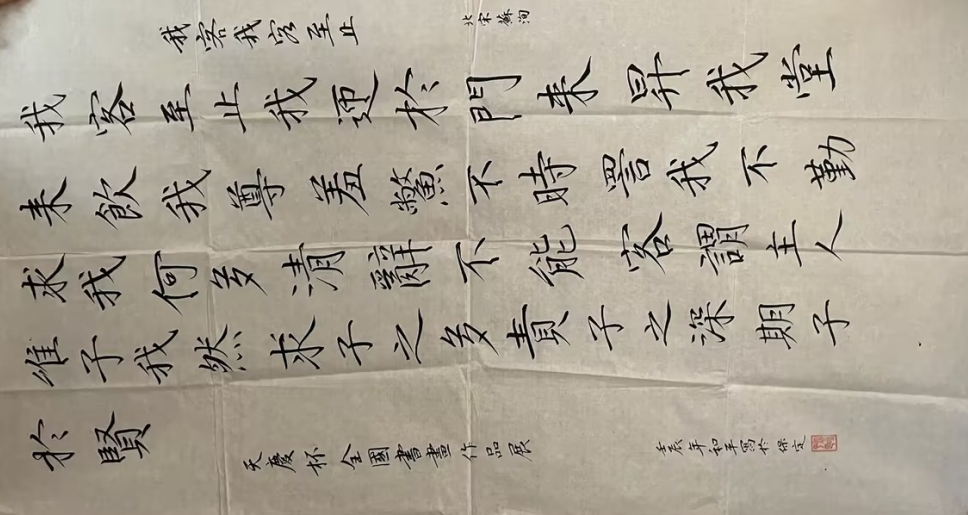 我客我客至止
北宋蘇洵
我客至止我迎於門來昇我堂
來飲我尊羞鱉不時詈我不勤
求我何多請辭不能客謂主人
維子我然求子之多責子之深期子
於賢
天慶杯全國書畫作品展
壬辰年和平寫於保定